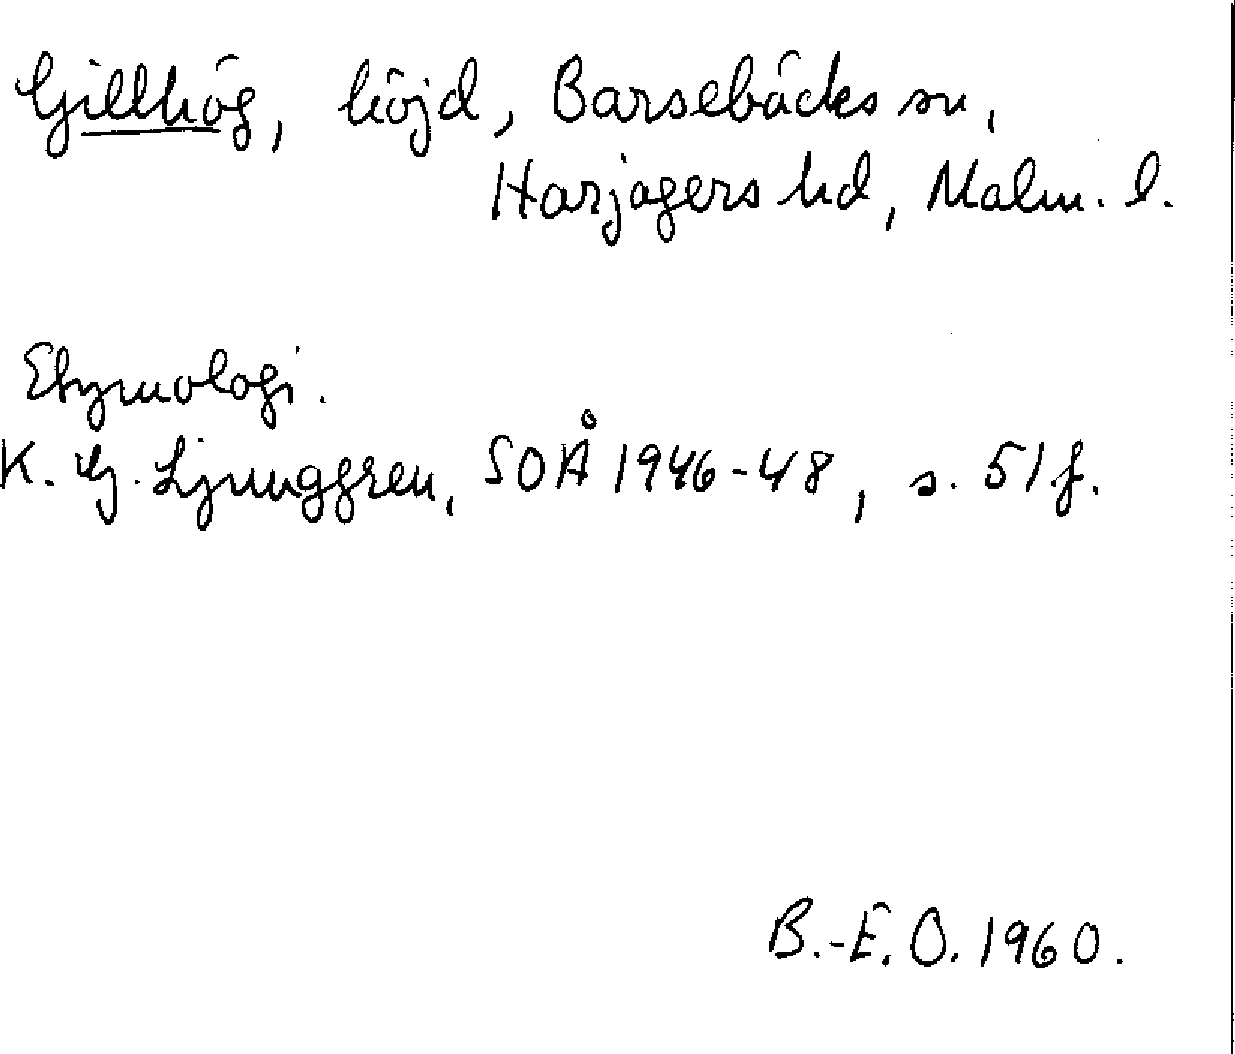 Gillhög, höjd, Barsebäcks sn,
Harjagers hd, Malm. l.
Etymologi.
K. G. Ljunggren, SOÅ 1946-48, s. 51 f.
B.-E. O. 1960.